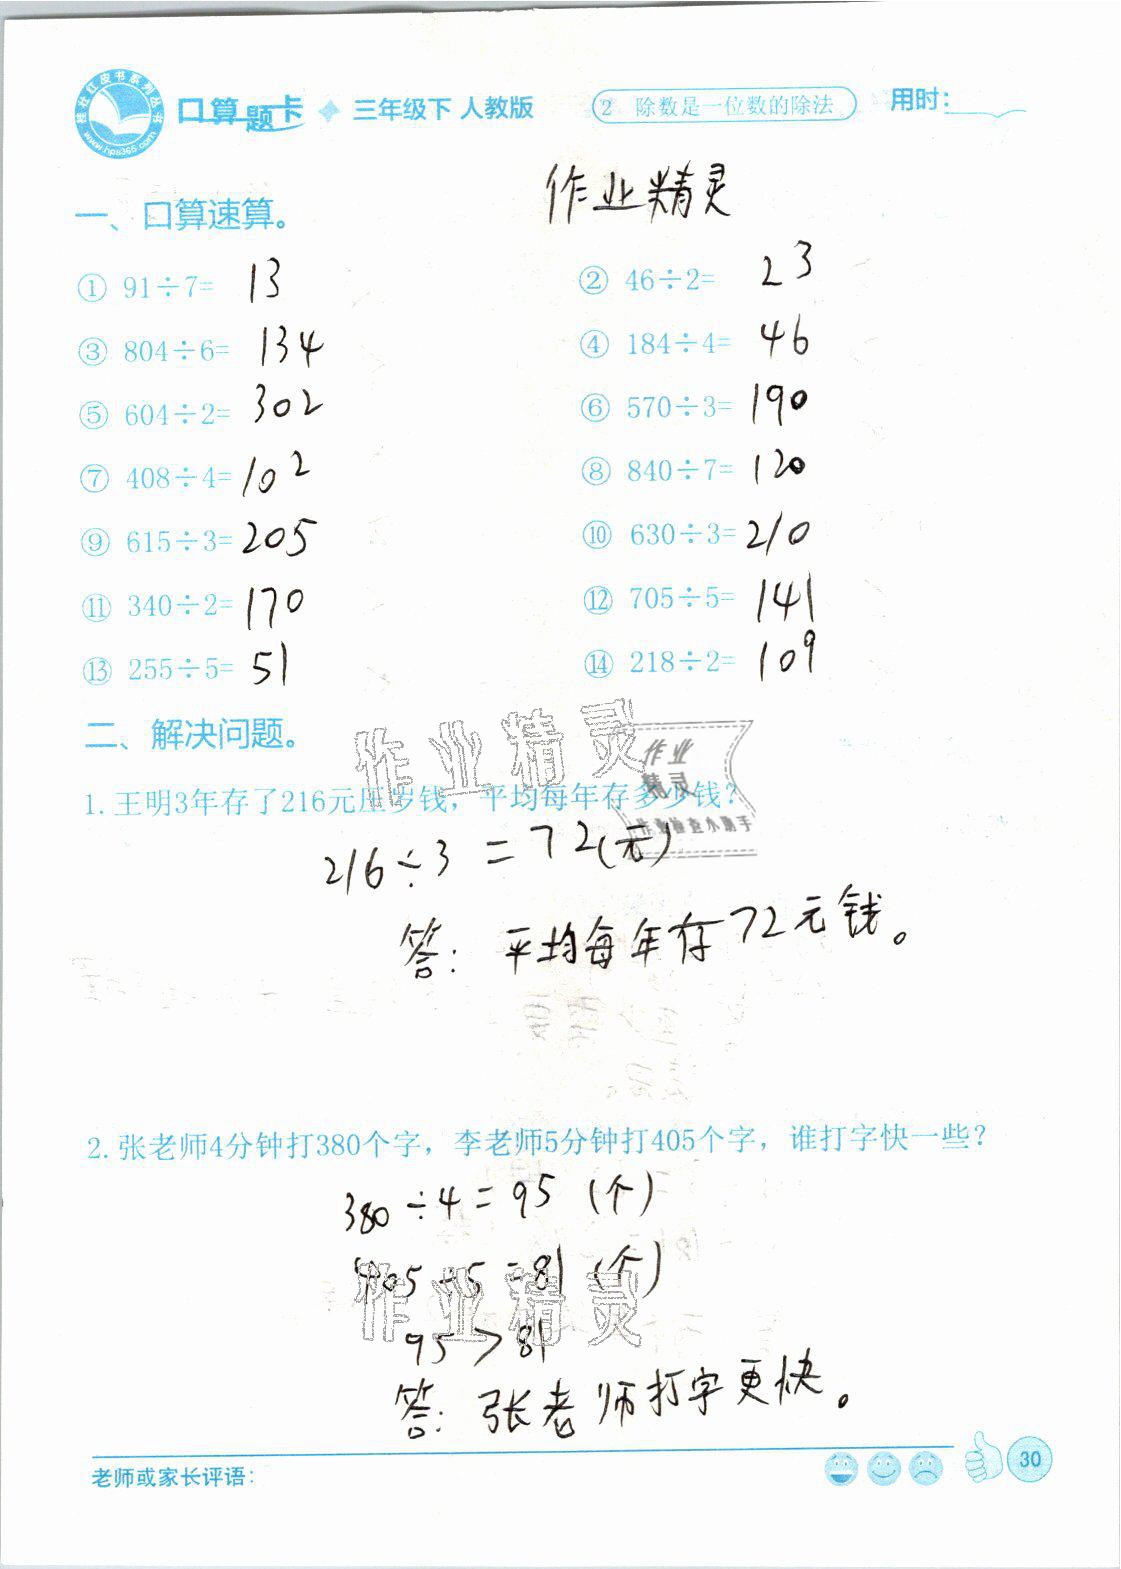 口算题卡 三年级下 人教版 2 除数是一位数的除法 用时:
www.hps365.com
作业精灵
一、口算速算。
① 91÷7= 13 ② 46÷2= 23
③ 804÷6= 134 ④ 184÷4= 46
⑤ 604÷2= 302 ⑥ 570÷3= 190
⑦ 408÷4= 102 ⑧ 840÷7= 120
⑨ 615÷3= 205 ⑩ 630÷3= 210
⑪ 340÷2= 170 ⑫ 705÷5= 141
⑬ 255÷5= 51 ⑭ 218÷2= 109
二、解决问题。
作业精灵
作业
精灵
作业检查小助手
1.王明3年存了216元压岁钱，平均每年存多少钱？
216÷3=72(元)
答：平均每年存72元钱。
2.张老师4分钟打380个字，李老师5分钟打405个字，谁打字快一些？
380÷4=95(个)
405÷5=81(个)
作业精灵
95>81
答：张老师打字更快。
老师或家长评语：
30